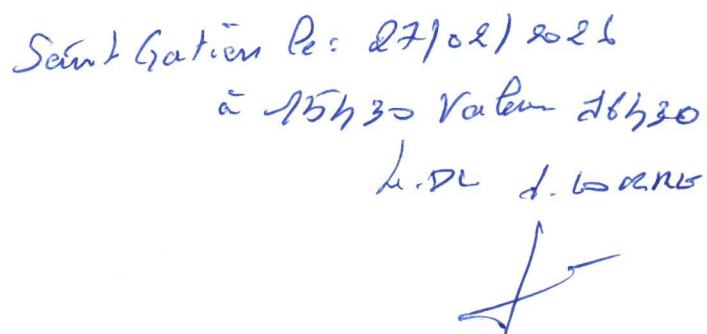 Saint Gatien le : 27/02/2026
à 15h30 Valeur 16h30
Le. DL d.